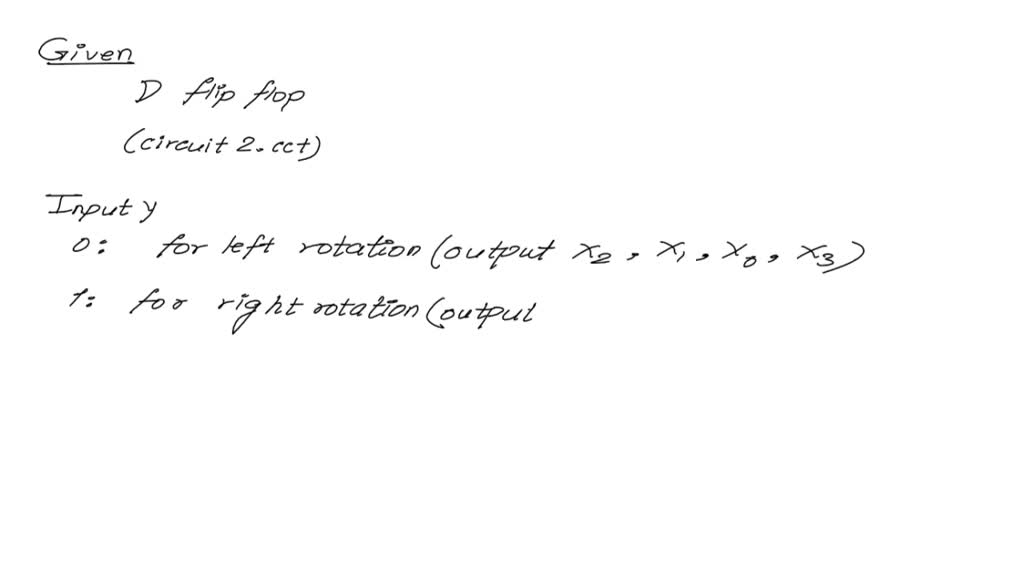 Given
D flip flop
(circuit 2.cct)
Input y
0: for left rotation (output X2, X1, X0, X3)
1: for right rotation (output